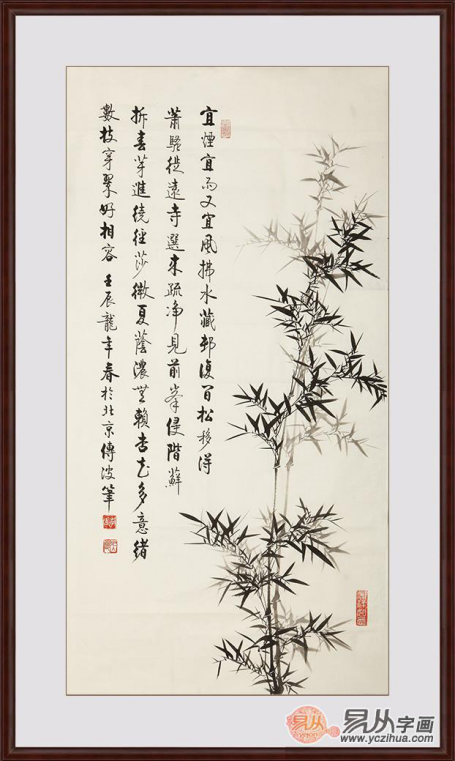 宜煙宜雨又宜風拂水藏邨復間松移得
蕭騷從遠寺選來疏淨見前峯侵階蘚
拆春芽進繞徑莎微夏蔭濃無賴杏花多意緒
數枝穿翠好相容 壬辰龍年春於北京傅波筆
易从
易从字画
www.yczihua.com